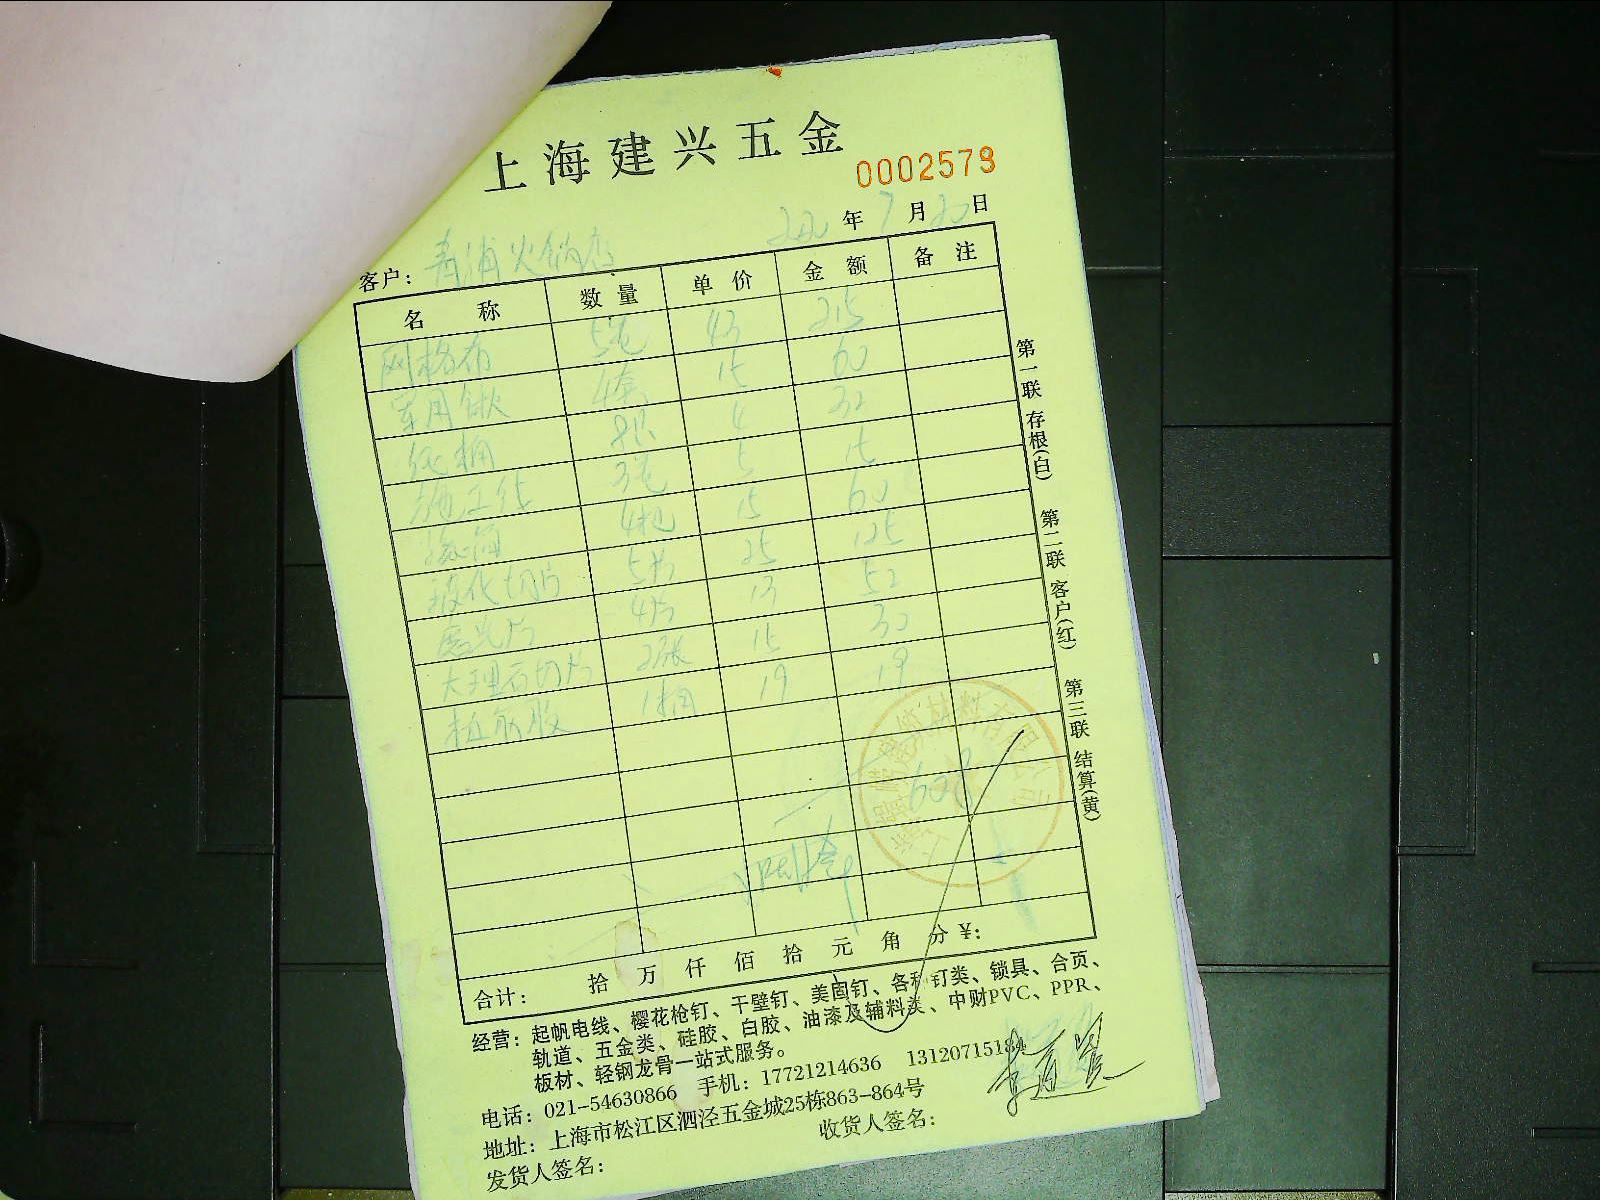 上海建兴五金
0002579
年 7 月 20 日
客户： 青浦火锅店
名称 数量 单价 金额 备注
网格布 5卷 43 215
军用锹 4套 15 60
8 4 32
3 5 15
4把 15 60
玻化切片 5片 25 125
4片 13 52
大理石切片 2张 15 30
植筋胶 1桶 19 19
608
合计： 拾 万 仟 佰 拾 元 角 分 ¥：
经营：起帆电线、樱花枪钉、干壁钉、美固钉、各种钉类、锁具、合页、
轨道、五金类、硅胶、白胶、油漆及辅料类、中财PVC、PPR、
板材、轻钢龙骨一站式服务。
电话：021-54630866 手机：17721214636 13120715184
地址：上海市松江区泗泾五金城25栋863-864号
发货人签名： 收货人签名：
第一联 存根(白) 第二联 客户(红) 第三联 结算(黄)